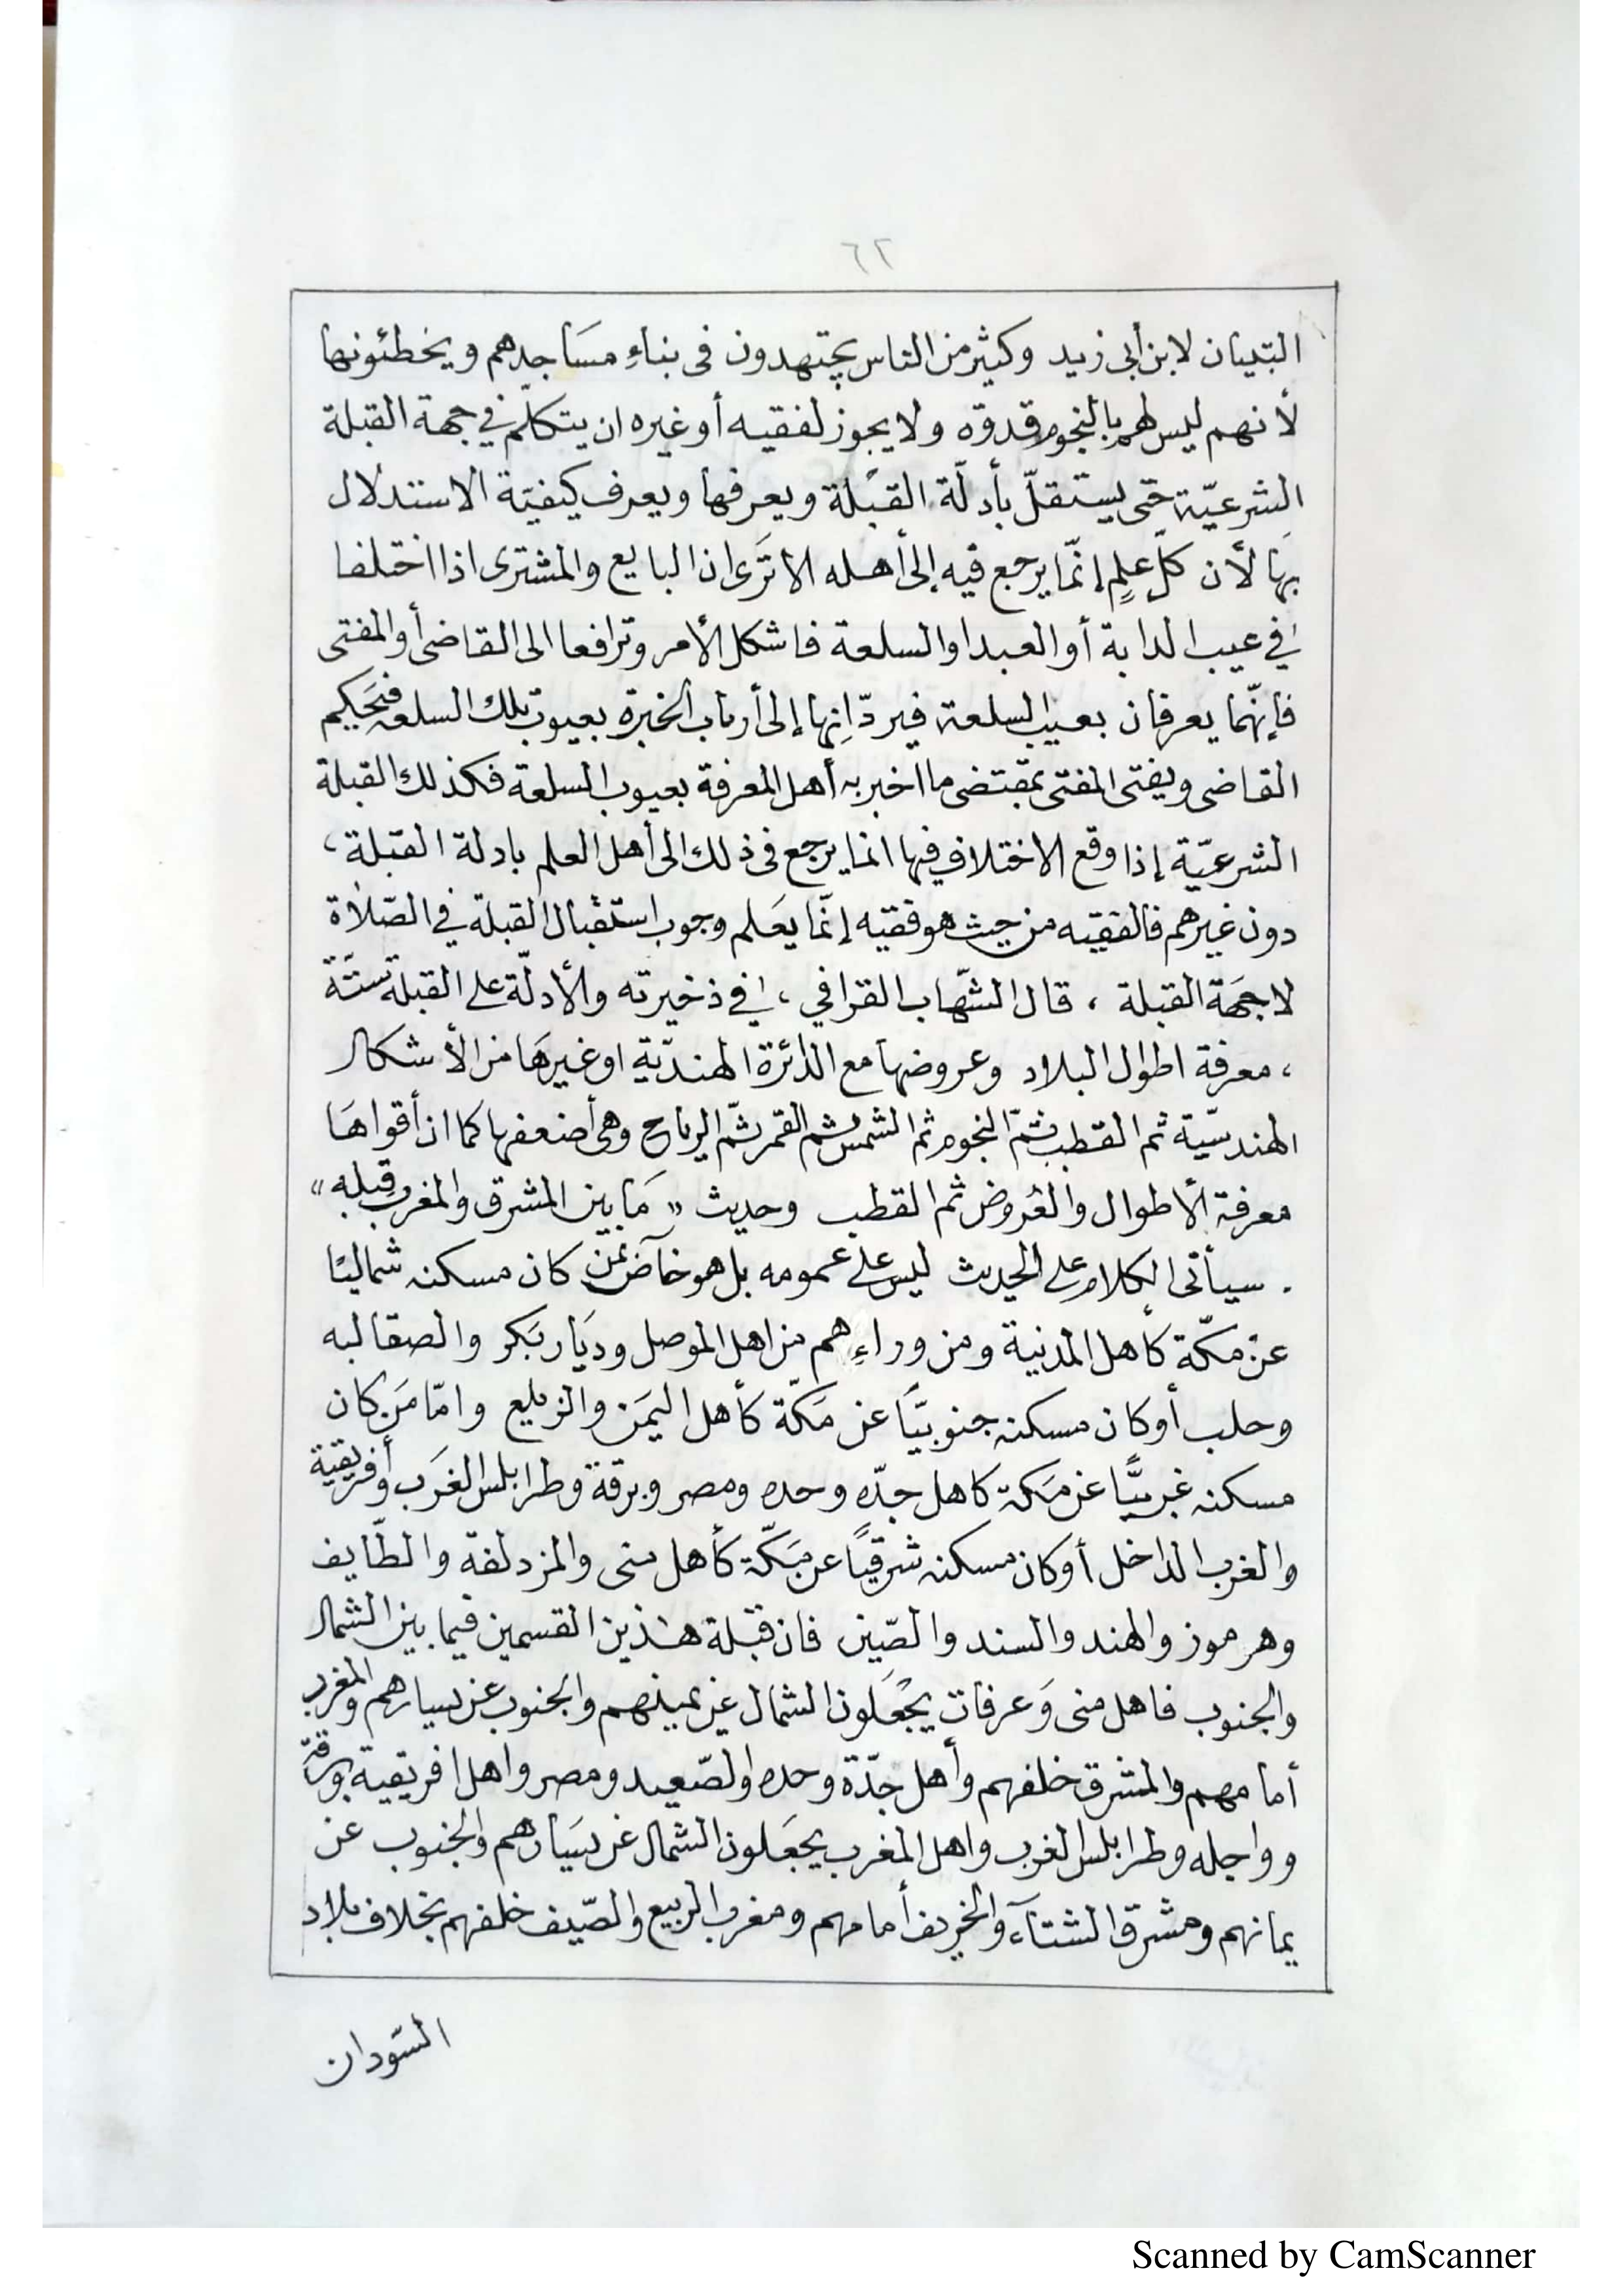 ٦٢
التبيان لابن أبي زيد وكثير من الناس يجتهدون فى بناءِ مسَاجدهم ويخطئونها
لأنهم ليس لهم بالنجوم قدوة ولا يجوز لفقيه أو غيره ان يتكلّم في جهة القبلة
الشرعيّة حتى يستقلّ بأدلّة القبْلة ويعرفها ويعرف كيفيّة الاستدلال
بهَا لأن كلّ علمٍ إنّما يرجع فيه إلى أهله الا ترَى ان البايع والمشترى اذا اختلفا
في عيب الدابة أو العبد او السلعة فاشكل الأمر وترافعا الى القاضى أو المفتى
فإنّهما يعرفان بعيب السلعة فيردّانها إلى أرباب الخبرة بعيوب تلك السلعه فيَحكم
القاضى ويفتى المفتى بمقتضى ما اخبر به أهل المعرفة بعيوب السلعة فكذلك القبلة
الشرعيّة إذا وقع الاختلاف فيها انما يرجع فى ذلك الى أهل العلم بادلة القبلة ،
دون غيرهم فالفقيه من حيث هو فقيه إنّما يعَلم وجوب استقبال القبلة في الصّلاة
لا جهَة القبلة ، قال الشّهاب القرافي ، في ذخيرته والأدلّة على القبلة ستّة
، معرفة اطوال البلاد وعروضها مع الدائرة الهنديّة او غيرهَا من الأشكال
الهندسيّة ثم القطب ثمّ النجوم ثم الشمس ثم القمر ثمّ الرياح وهى أضعفها كما ان أقواهَا
معرفة الأطوال والعُروض ثم القطب وحديث « مَا بين المشرق والمغرب قبله »
. سيأتى الكلام على الحديث ليس على عمومه بل هو خاصّ بمن كان مسكنه شماليًا
عن مكّة كأهل المدنية ومن وراءِهم من اهل الموصل وديَار بَكر والصقالبه
وحلب أو كان مسكنه جنوبيًّا عن مَكّة كأهل اليمَن والزيلع وامّا مَن كان
مسكنه غربيًّا عن مَكة كاهل جدّه وحده ومصر وبرقة وطرابلس الغرَب وأفريقية
والغرب الداخل أو كان مسكنه شرقيًا عن مَكّة كأهل منى والمزدلفة والطّايف
وهرموز والهند والسند والصّين فان قبْلة هذين القسمين فيما بين الشمال
والجنوب فاهل منى وَعرفات يجْعَلون الشمال عن يمينهم والجنوب عن يسارهم والمغرب
أمامهم والمشرق خلفهم وأهل جدّة وحده والصّعيد ومصر واهل افريقية وبرقة
وواجله وطرابلس الغرب واهل المغرب يجعَلون الشمال عن يسَارهم والجنوب عن
يمانهم ومشرق الشتآء والخريف أمامهم ومغرب الربيع والصّيف خلفهم بخلاف بلاد
السّودان
Scanned by CamScanner